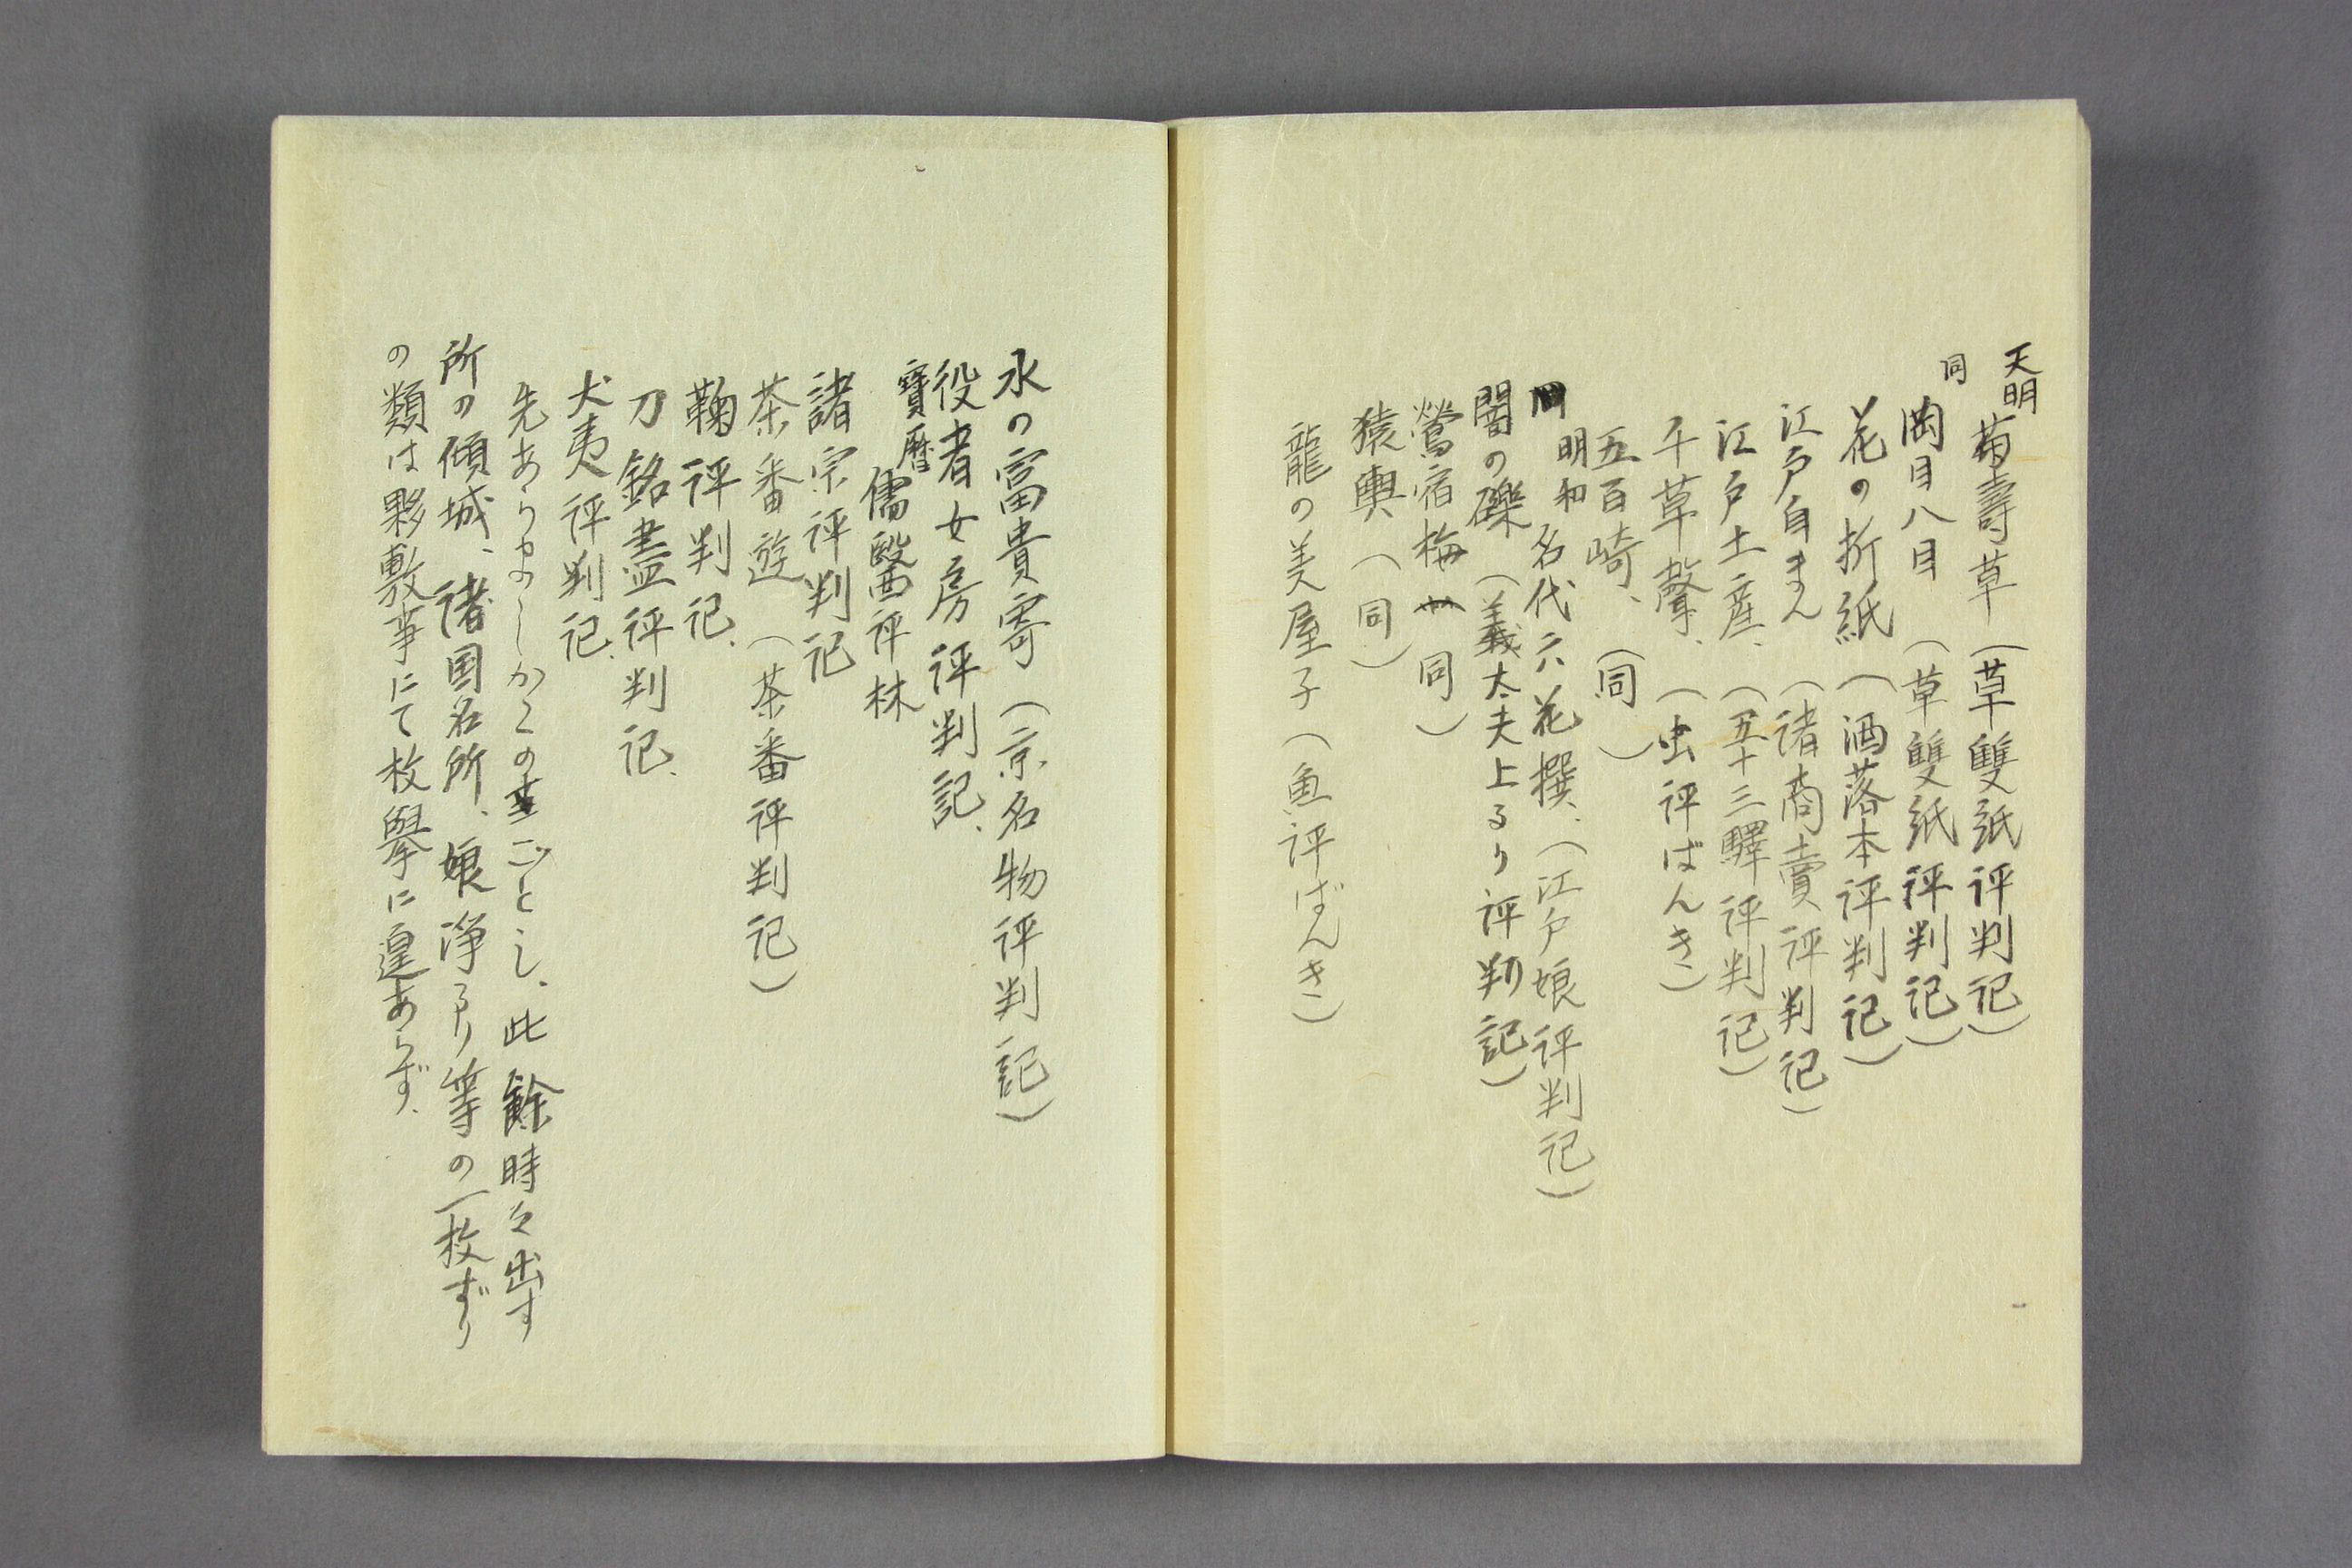 天明 菊壽草 (草雙紙评判记)
同 岡目八目 (草雙紙评判记)
花の折紙 (酒落本评判记)
江戸自まん (诸商賣评判记)
江戸土産、 (五十三驛评判记)
千草聲、 (虫评ばんき)
五百崎、 (同)
明和 名代六花撰、(江戸娘评判记)
闇の礫 (義太夫上るり评判記)
鶯宿梅 同)
猿輿 (同)
龍の美屋子 (魚评ばんき)
水の富貴寄 (京名物评判記)
役者女房评判記、
寶暦 儒醫评林
諸宗评判记
茶番遊 (茶番评判记)
鞠评判记、
刀銘盡评判记、
犬夷评判记、
先あらましかくのごとし、此餘時々出す
所の傾城、诸国名所、娘浄るり等の一枚ずり
の類は夥敷事にて枚擧に遑あらず、